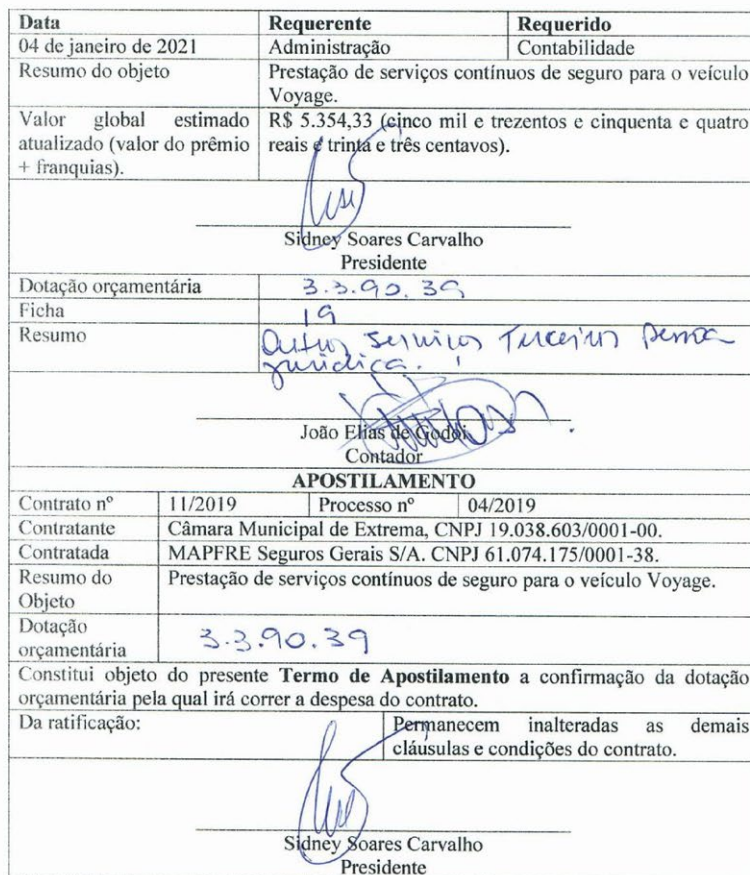 Data Requerente Requerido
04 de janeiro de 2021 Administração Contabilidade
Resumo do objeto Prestação de serviços contínuos de seguro para o veículo
Voyage.
Valor global estimado R$ 5.354,33 (cinco mil e trezentos e cinquenta e quatro
atualizado (valor do prêmio reais e trinta e três centavos).
+ franquias).
Sidney Soares Carvalho
Presidente
Dotação orçamentária 3.3.90.39
Ficha 19
Resumo Outros Serviços Terceiros Pessoa
jurídica.
João Elias de Godoi
Contador
APOSTILAMENTO
Contrato nº 11/2019 Processo nº 04/2019
Contratante Câmara Municipal de Extrema, CNPJ 19.038.603/0001-00.
Contratada MAPFRE Seguros Gerais S/A. CNPJ 61.074.175/0001-38.
Resumo do Prestação de serviços contínuos de seguro para o veículo Voyage.
Objeto
Dotação
orçamentária 3.3.90.39
Constitui objeto do presente Termo de Apostilamento a confirmação da dotação
orçamentária pela qual irá correr a despesa do contrato.
Da ratificação: Permanecem inalteradas as demais
cláusulas e condições do contrato.
Sidney Soares Carvalho
Presidente